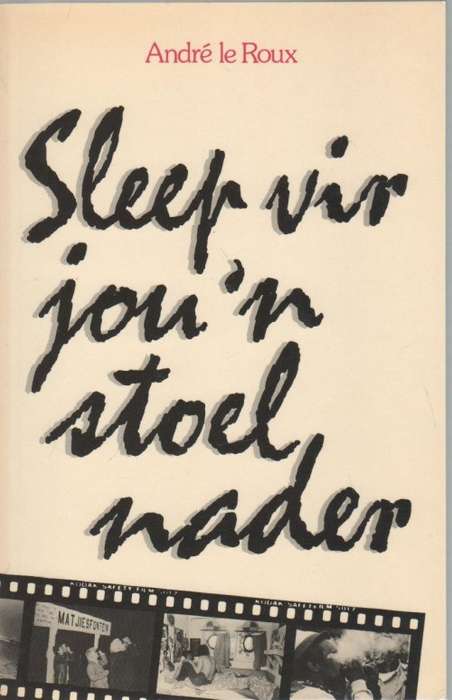 André le Roux
Sleep vir
jou 'n
stoel
nader
KODAK SAFETY FILM 5017
KODAK SAFETY FILM 5017
MATJIESFONTEIN